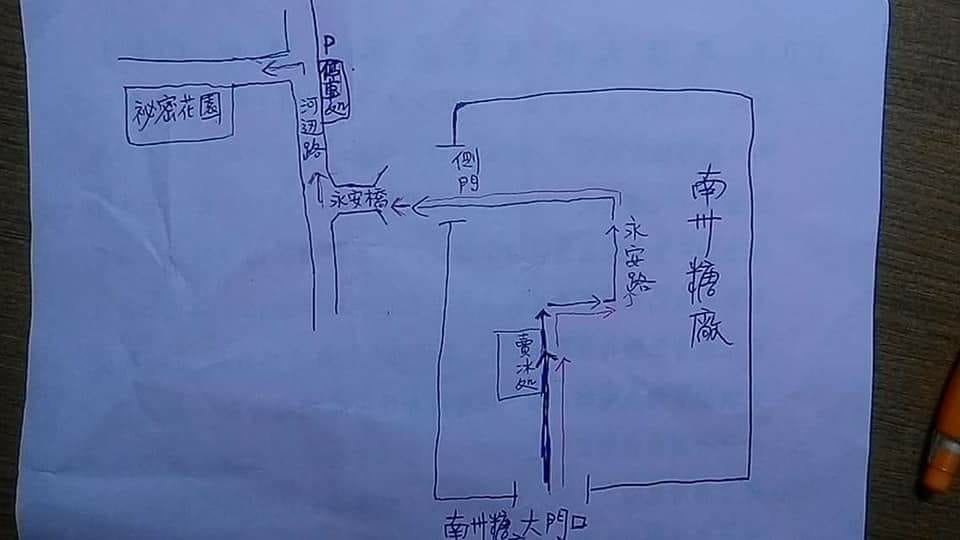 P
停車処
河辺路
祕密花園
永安橋
側門
永安路
南州糖廠
賣冰処
南州糖大門口